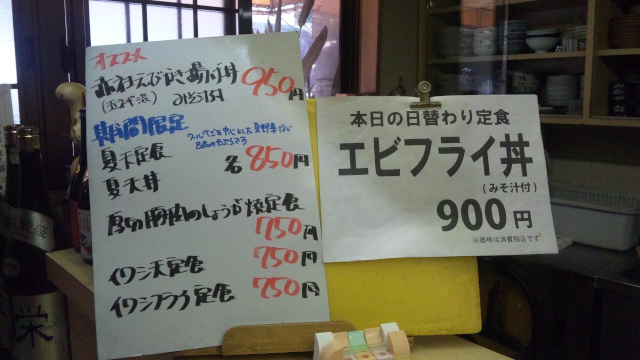 オススメ
赤社えびかき揚げ丼 950円
(玉ネギ、藻) みそ汁付
期間限定
夏天定食
夏天丼
各850円
厚切豚肉のしょうが焼定食
750円
イワシ天定食 750円
イワシフライ定食 750円
本日の日替わり定食
エビフライ丼
(みそ汁付)
900円
※価格は消費税込です
栄